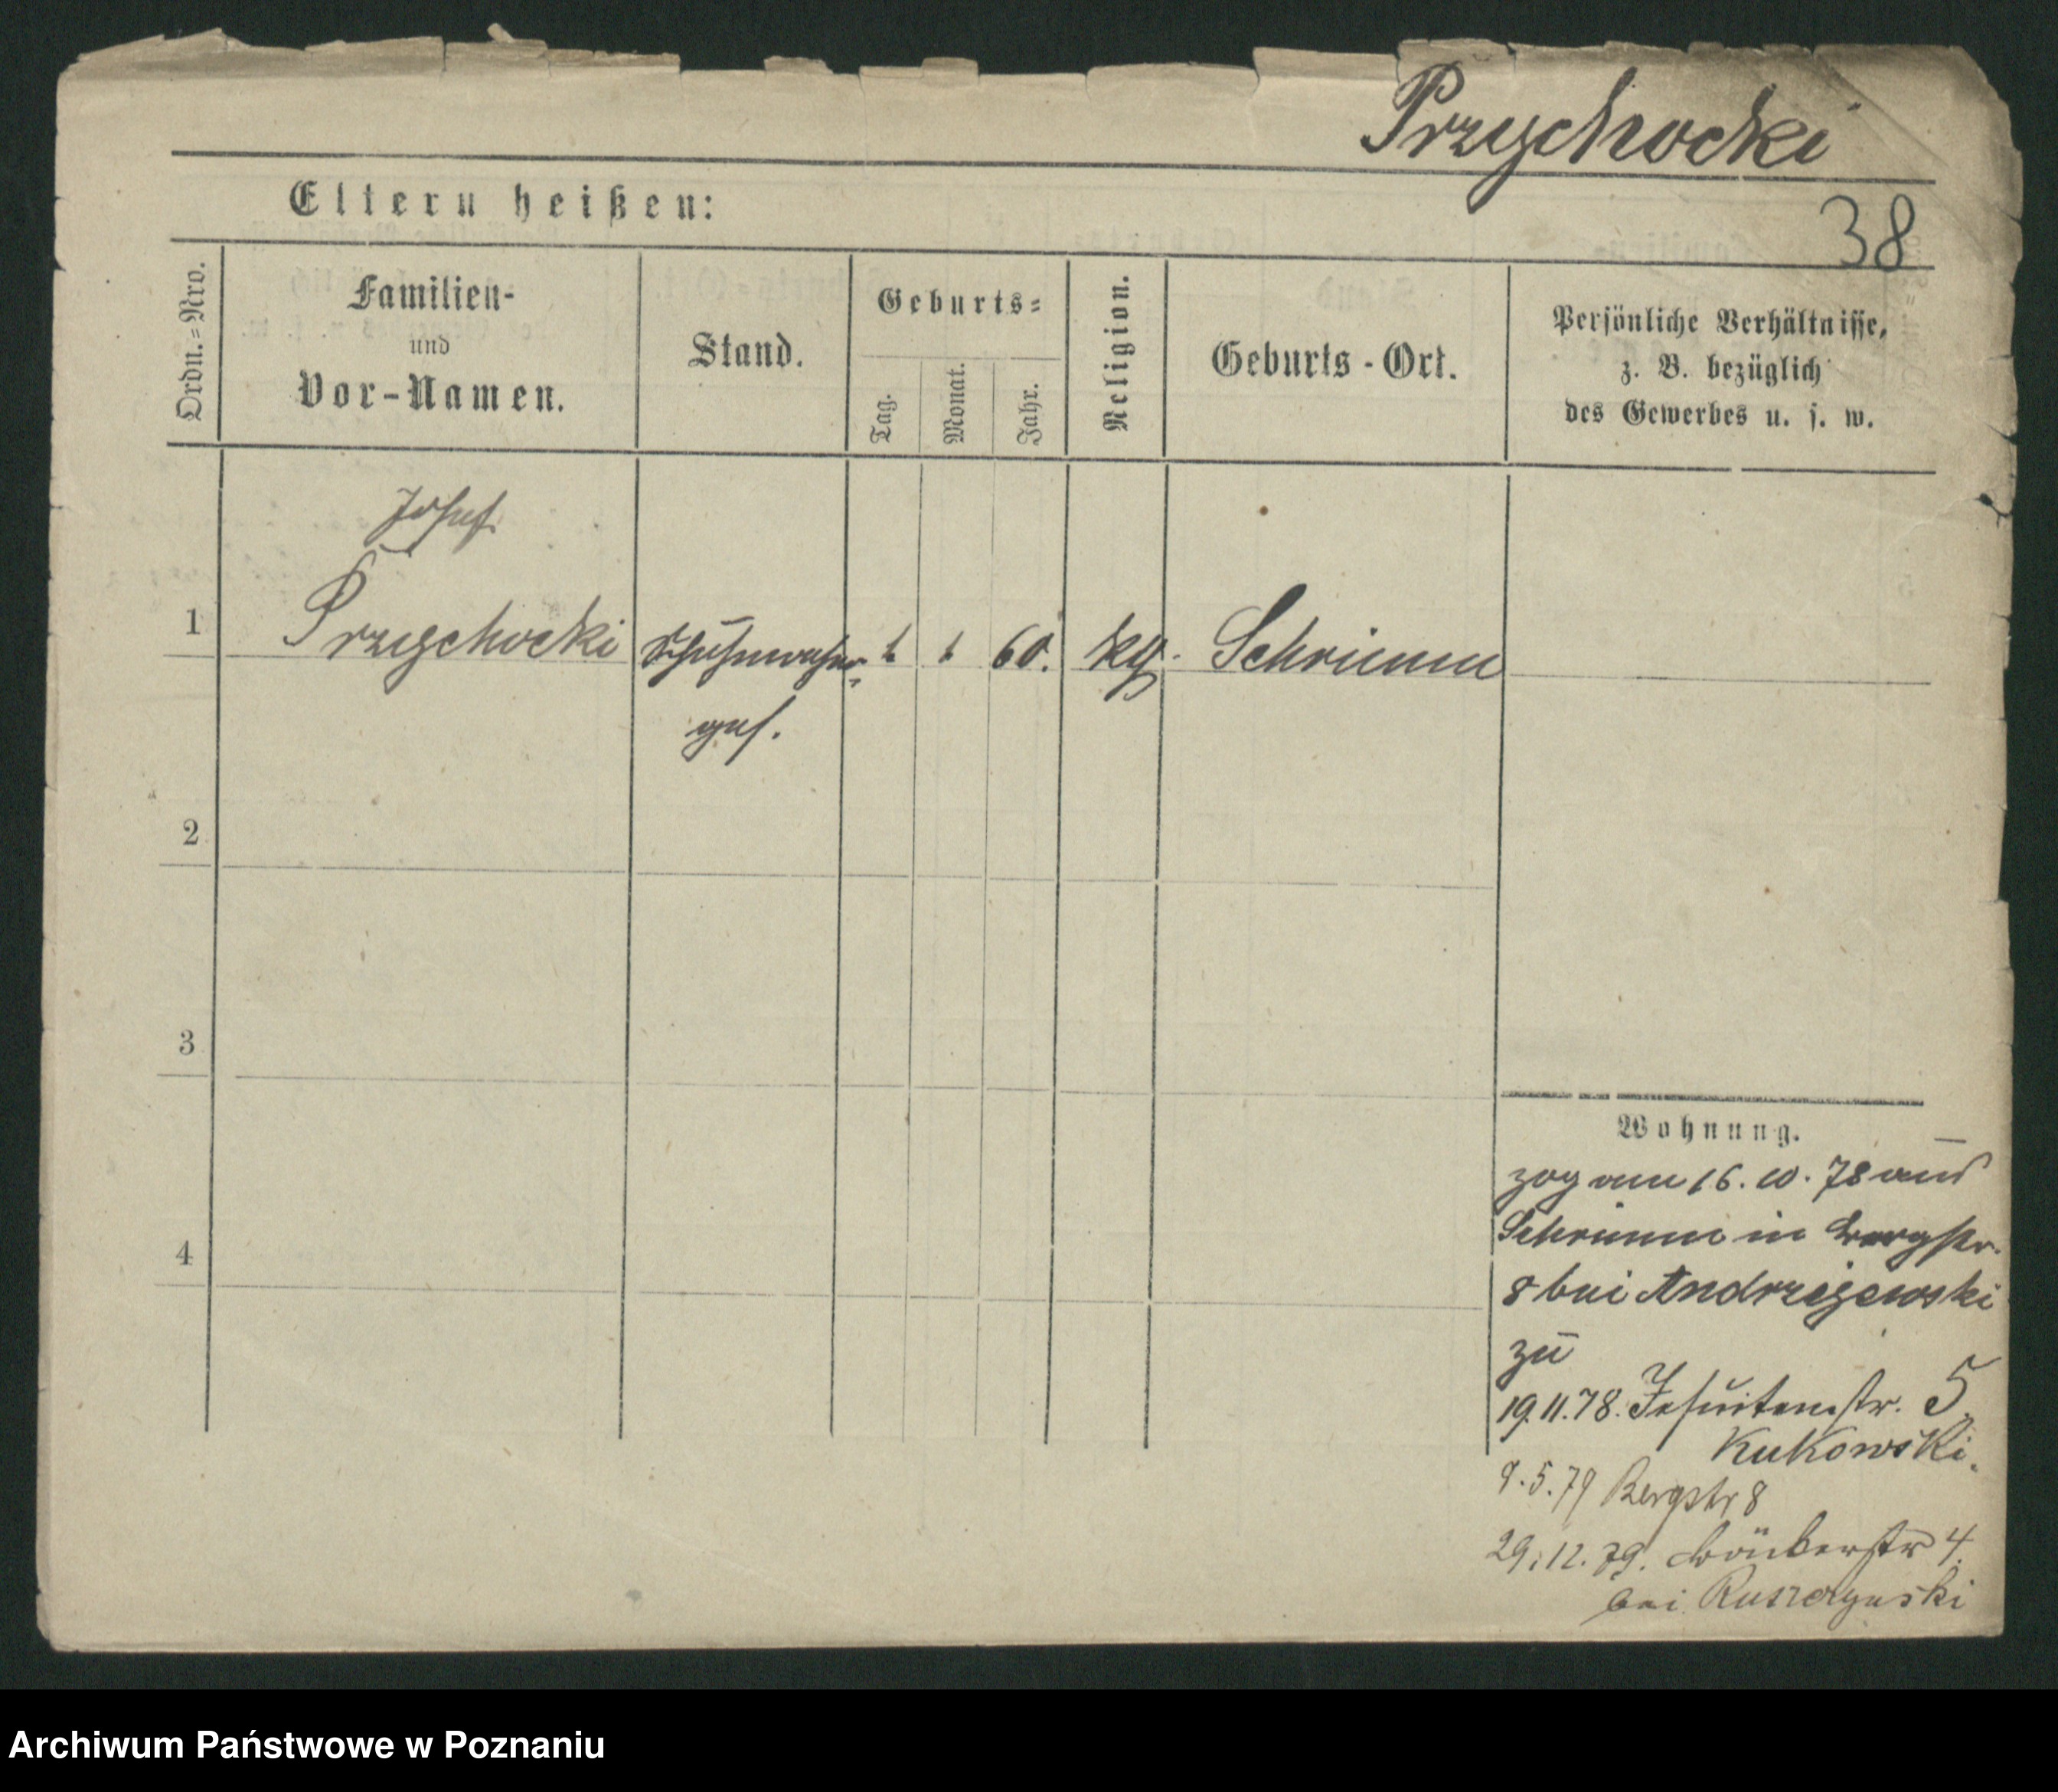 Przychocki
38
Eltern heißen:
Ordn.=Nro.
Familien-
und
Vor-Namen.
Stand.
Geburts=
Tag.
Monat.
Jahr.
Religion.
Geburts-Ort.
Persönliche Verhältnisse,
z. B. bezüglich
des Gewerbes u. s. w.
Josef
1 Przychocki Schuhmacher- 60. kg. Schrimm
ges.
2
3
4
Wohnung.
zog am 16. 10. 78 aus
Schrimm in Bergstr.
8 bei Andrzejewski
zu
19.11.78. Jesuitenstr. 5
Kukowski.
9.5.79 Bergstr 8
29.12.79. 4.
bei
Archiwum Państwowe w Poznaniu